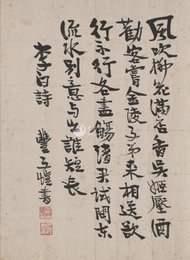 風吹柳花滿店香吳姬壓酒
勸客嘗金陵子弟來相送欲
行不行各盡觴請君試問東
流水別意與之誰短長
李白詩
豐子愷書